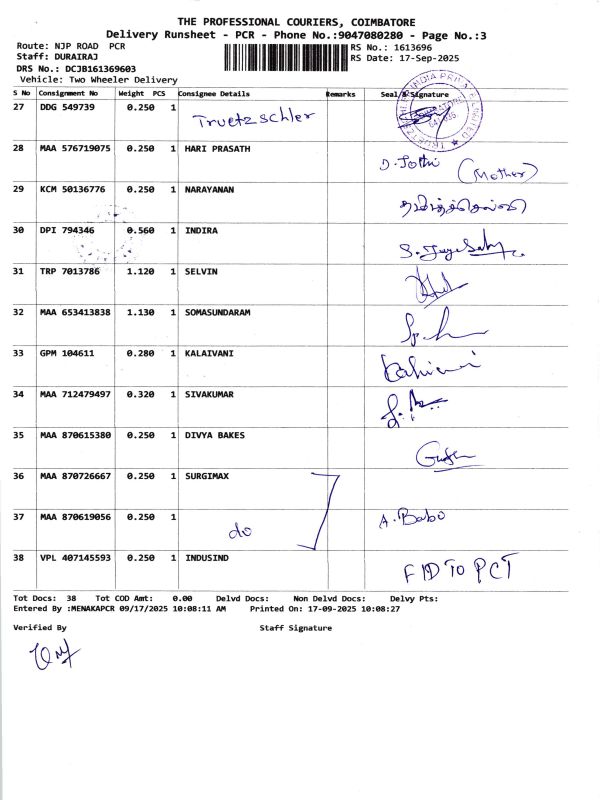 THE PROFESSIONAL COURIERS, COIMBATORE
Delivery Runsheet - PCR - Phone No.:9047080280 - Page No.:3
Route: NJP ROAD PCR RS No.: 1613696
Staff: DURAIRAJ RS Date: 17-Sep-2025
DRS No.: DCJB161369603
Vehicle: Two Wheeler Delivery
S No Consignment No Weight PCS Consignee Details Remarks Seal & Signature
27 DDG 549739 0.250 1 Truetzschler
28 MAA 576719075 0.250 1 HARI PRASATH D. Jothi (Mother)
29 KCM 50136776 0.250 1 NARAYANAN
30 DPI 794346 0.560 1 INDIRA
31 TRP 7013786 1.120 1 SELVIN
32 MAA 653413838 1.130 1 SOMASUNDARAM
33 GPM 104611 0.280 1 KALAIVANI
34 MAA 712479497 0.320 1 SIVAKUMAR
35 MAA 870615380 0.250 1 DIVYA BAKES
36 MAA 870726667 0.250 1 SURGIMAX
37 MAA 870619056 0.250 1 do A. Babu
38 VPL 407145593 0.250 1 INDUSIND FID TO PCT
Tot Docs: 38 Tot COD Amt: 0.00 Delvd Docs: Non Delvd Docs: Delvy Pts:
Entered By :MENAKAPCR 09/17/2025 10:08:11 AM Printed On: 17-09-2025 10:08:27
Verified By Staff Signature